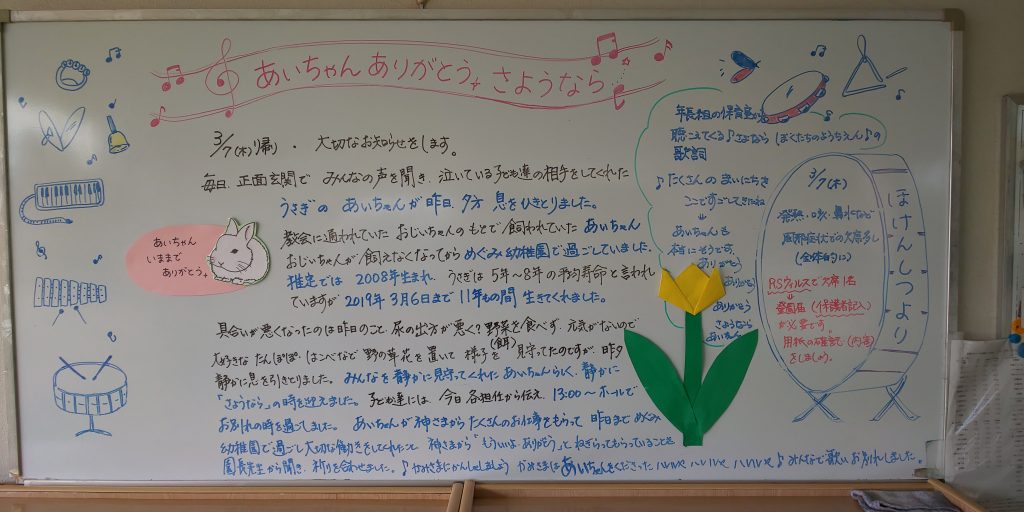 あいちゃん ありがとう さようなら
3/7(木)帰り ・ 大切なお知らせをします。
毎日、正面玄関で みんなの声を聞き、泣いている子ども達の相手をしてくれた
うさぎの あいちゃんが昨日、夕方 息をひきとりました。
教会に通われていた おじいちゃんのもとで飼われていた あいちゃん
おじいちゃんが飼えなくなってから めぐみ幼稚園で過ごしていました。
推定では 2008年生まれ、うさぎは 5年〜8年の平均寿命と言われ
ていますが 2019年3月6日まで 11年もの間 生きてくれました。
具合いが悪くなったのは昨日のこと、尿の出方が悪く?野菜を食べず、元気がないので
大好きな たんぽぽ・はこべなど 野の草花を置いて 様子を(餌)見守ってたのですが、昨夕
静かに息を引きとりました。みんなを静かに見守ってくれた あいちゃんらしく、静かに
「さようなら」の時を迎えました。子ども達には 今日 各担任から伝え、13:00〜ホールで
お別れの時を過ごしました。 あいちゃんが 神さまから たくさんのお仕事をもらって 昨日まで めぐみ
幼稚園で過ごし大切な働きをしてくれたこと 神さまから「もういいよ、ありがとう」と ねぎらってもらっていることを
園長先生から聞き、祈りを合わせました。♪ かみさまにかんしゃしましょう かみさまは あいちゃんをくださった ハレルヤ ハレルヤ ハレルヤ ♪ みんなで歌い お別れしました。
あいちゃん
いままで
ありがとう
年長組の保育室から
聴こえてくる♪さよなら ぼくたちのようちえん♪の
歌詞
♪たくさんの まいにちを
ここですごしてきたね
あいちゃんも
本当にそうです
ありがとう
ありがとう
ありがとう
さようなら
あいちゃん
ほけんしつより
3/7(木)
発熱・咳・鼻水など
風邪症状での欠席多し
(全体的に)
RSウィルスで欠席1名
登園届(保護者記入)
が必要です
用紙の確認(内容)
をしましょう。